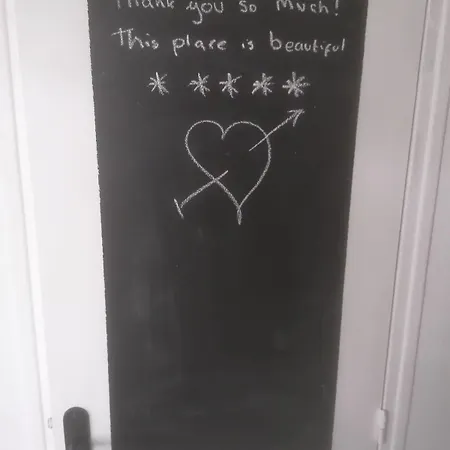 Thank you so much!
This place is beautiful
* * * * *